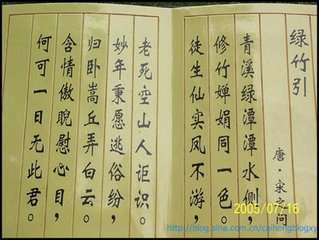 绿竹引
唐·宋之问
青溪绿潭潭水侧，
修竹婵娟同一色。
徒生仙实凤不游，
老死空山人讵识。
妙年秉愿逃俗纷，
归卧嵩丘弄白云。
含情傲睨慰心目，
何可一日无此君。
2005/07/16
http://blog.sina.com.cn/caihongblogxy